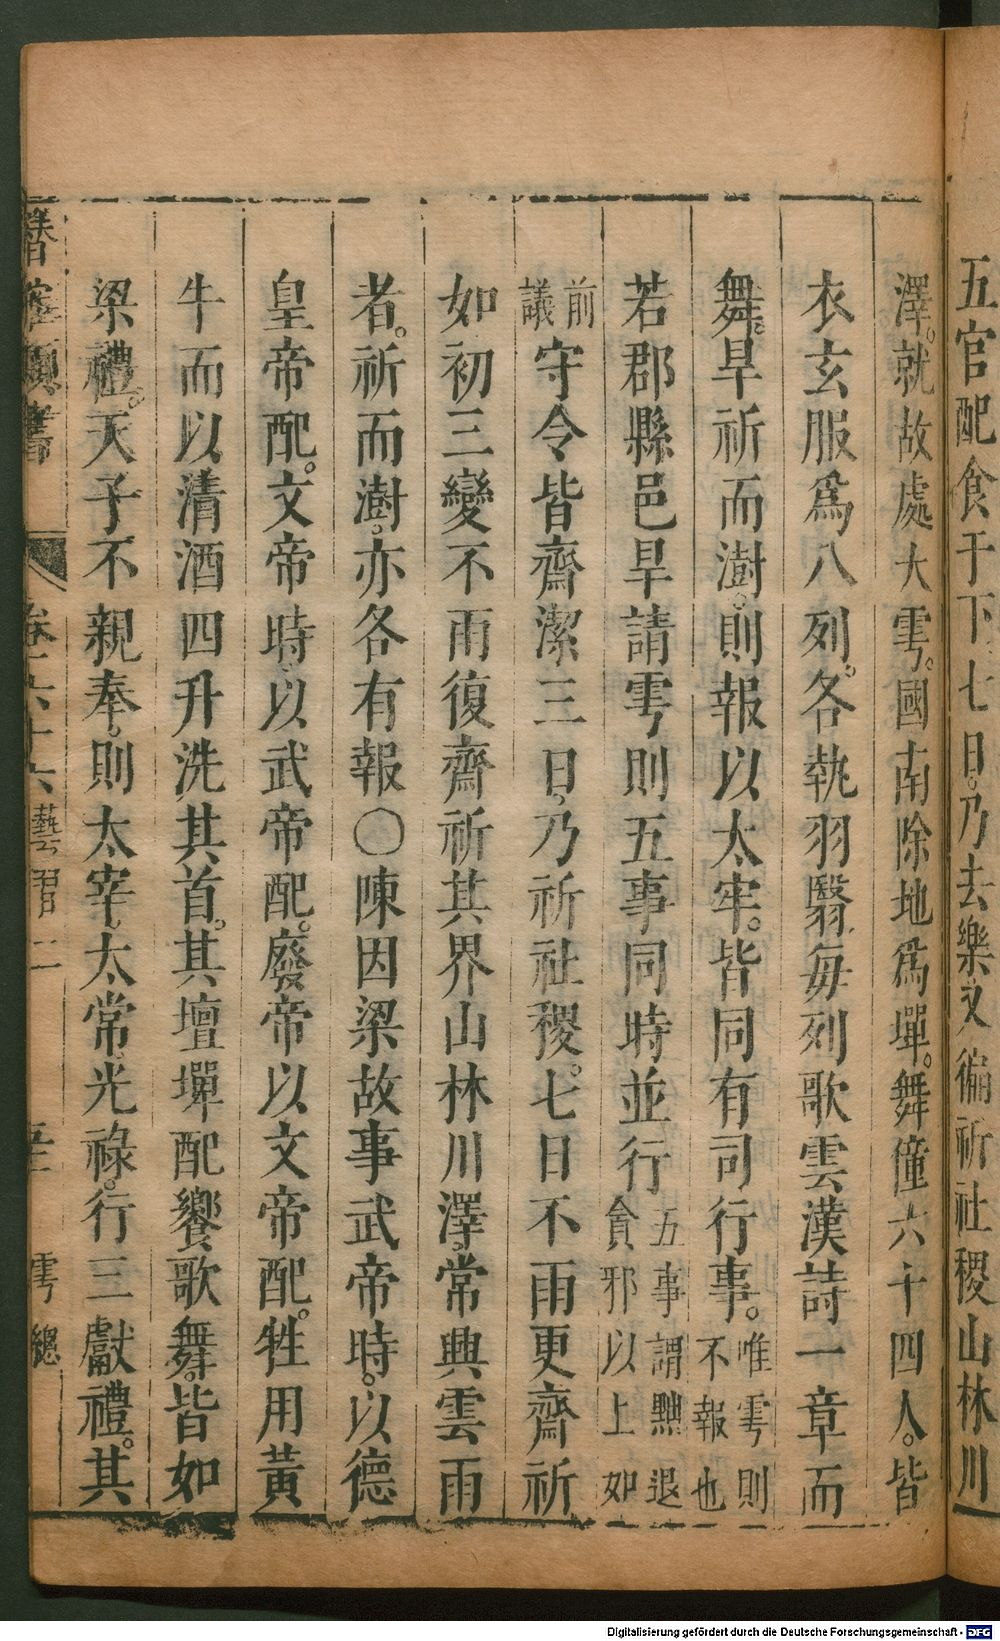 五官配食于下七日。乃去樂又徧祈社稷山林川
澤。就故處大雩。國南除地爲墠。舞僮六十四人。皆
衣玄服爲八列。各執羽翳每列歌雲漢詩一章而
舞。旱祈而澍。則報以太牢。皆同有司行事。唯雩則不報也
若郡縣邑旱請雩則五事同時並行五事謂黜退貪邪以上如
前議守令皆齋潔三日。乃祈社稷。七日不雨更齋祈
如初三變不雨復齋祈其界山林川澤。常興雲雨
者。祈而澍。亦各有報〇陳因梁故事武帝時。以德
皇帝配。文帝時以武帝配。廢帝以文帝配。牲用黃
牛而以清酒四升洗其首。其壇墠配饗歌舞。皆如
梁禮。天子不親奉。則太宰。太常光祿。行三獻禮。其
潛確類書 卷六十六藝習二 雩總
Digitalisierung gefördert durch die Deutsche Forschungsgemeinschaft - DFG